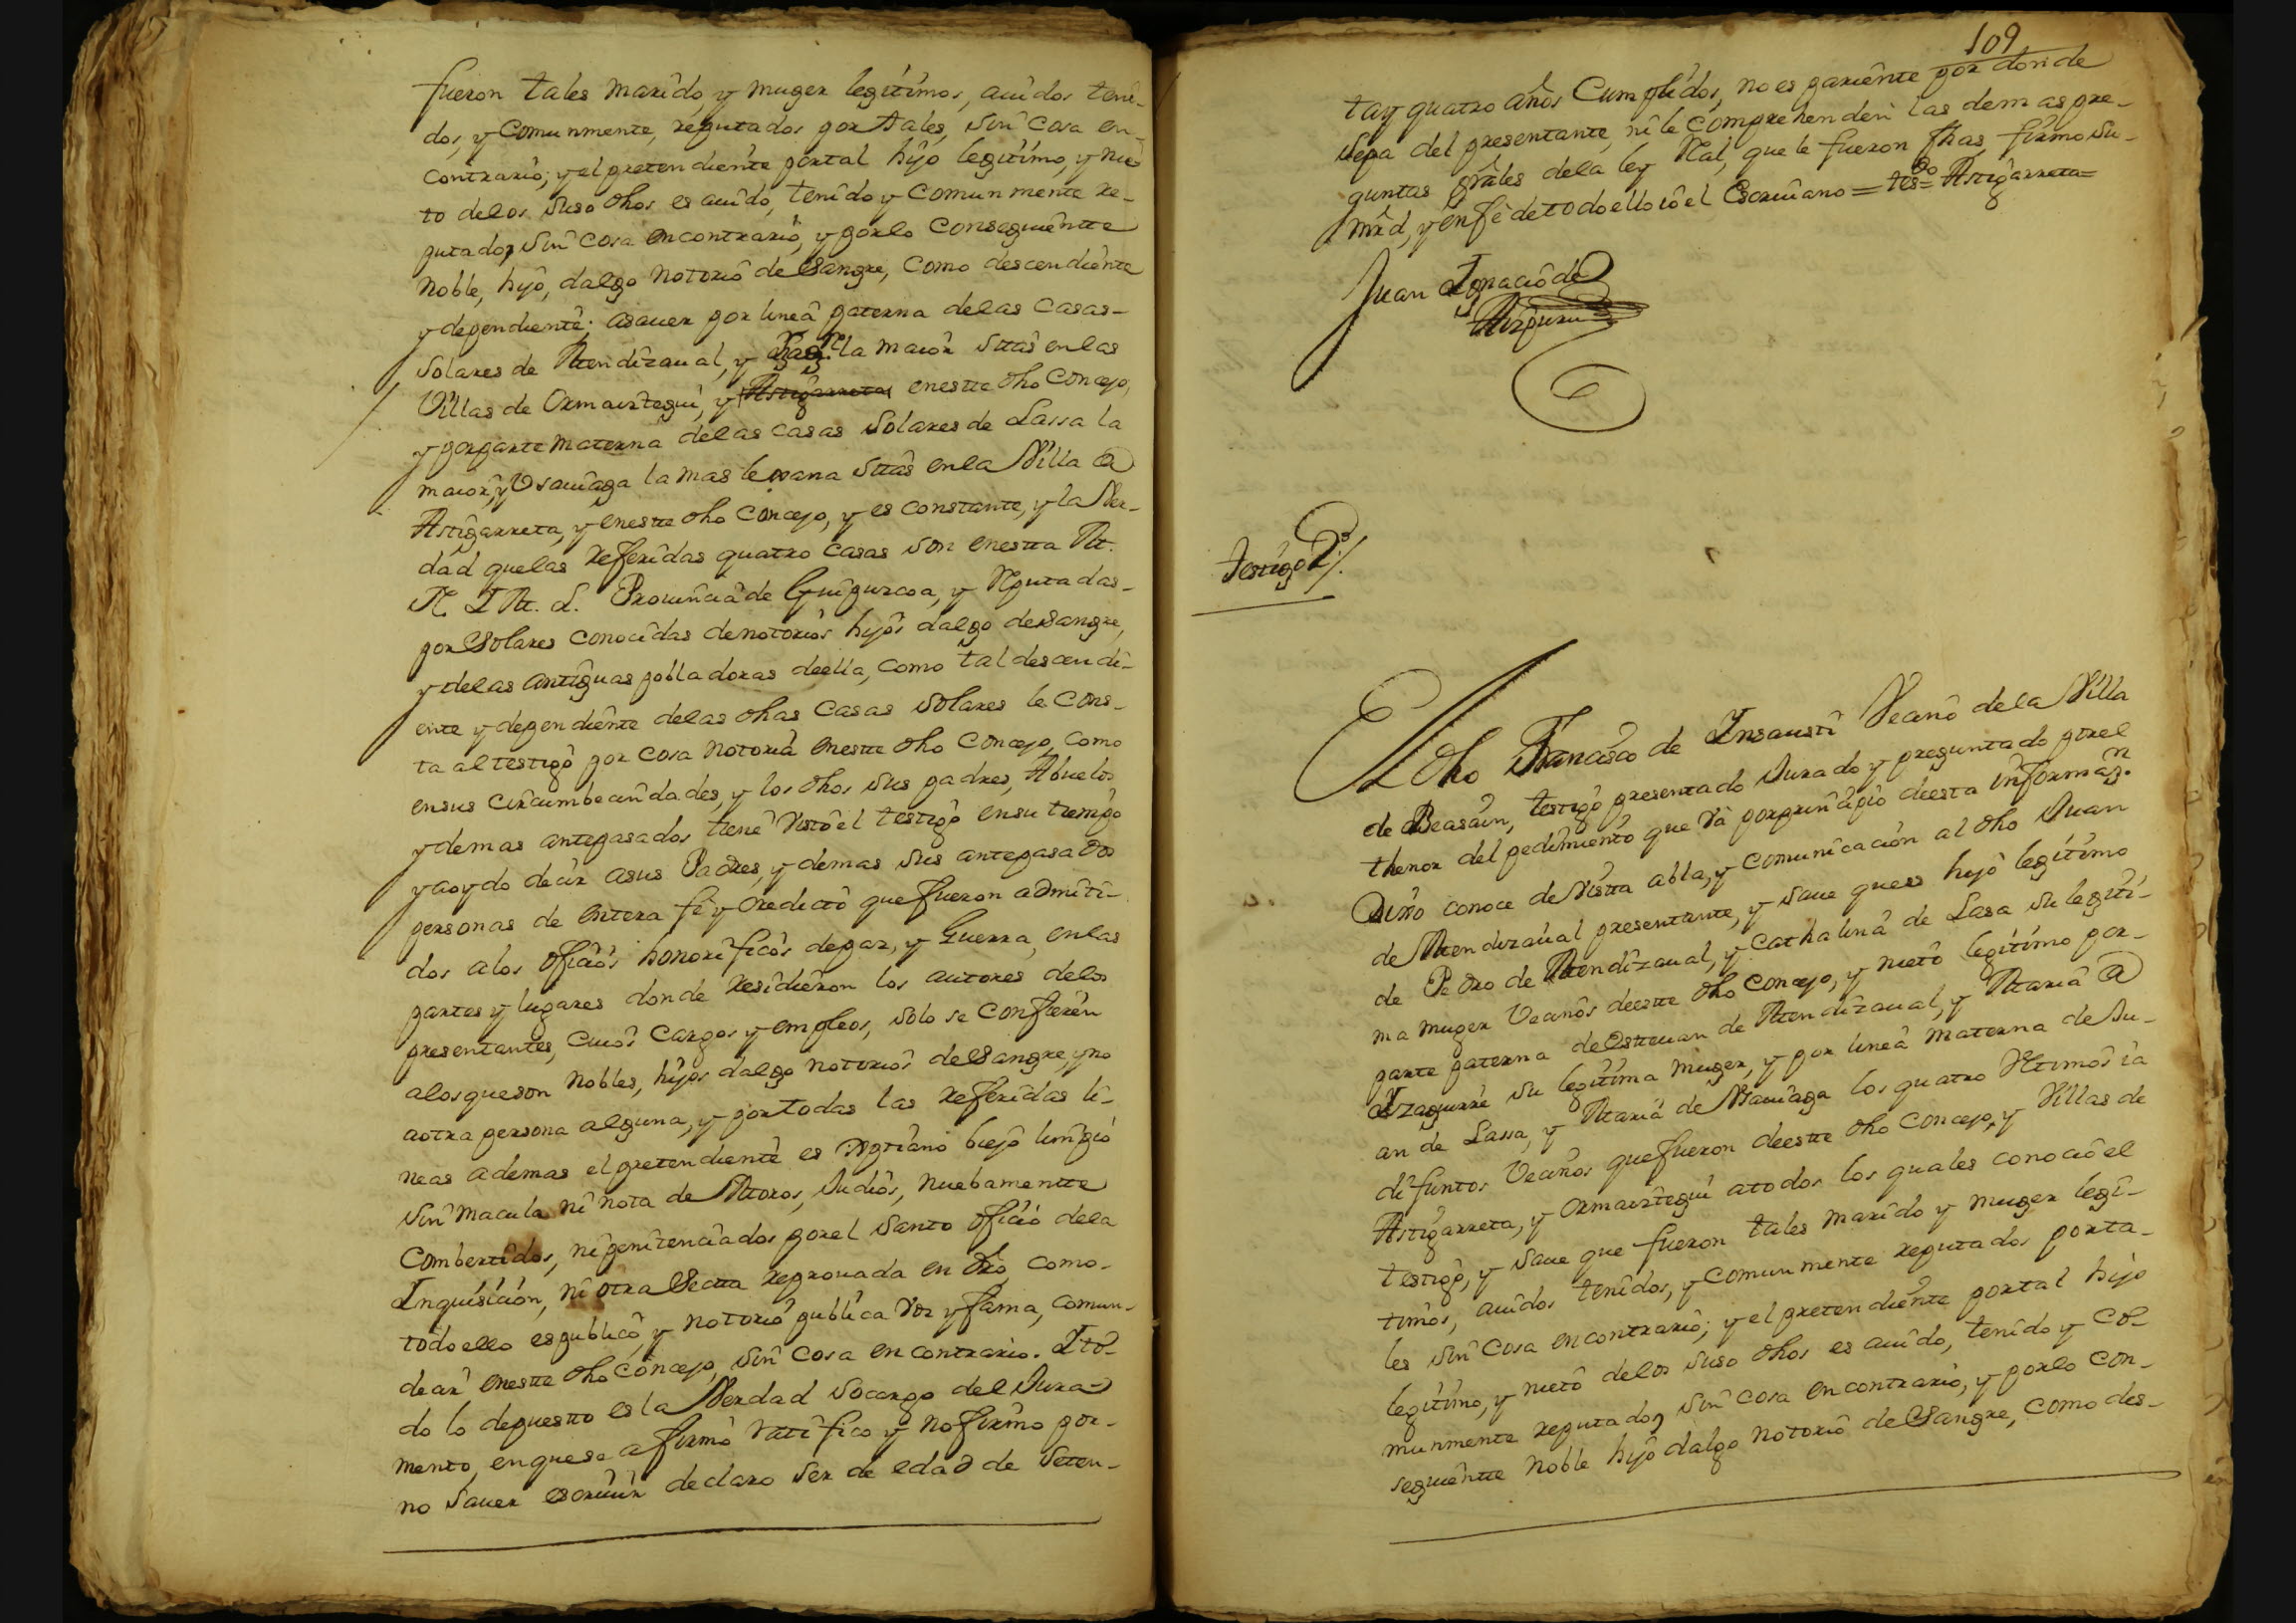 fueron tales marido, y muger legitimos, auidos teni-
dos, y Comunmente, reputados por tales, sin cosa en
contrario; y el pretendiente portal hijo legitimo, y nie
to delos suso dhos es auido, tenido y comunmente re-
putado, sin cosa en contrario, y porlo conseguientte
Noble, hijo, dalgo notorio de Sangre, como descendiente
y dependiente; asauer por linea paterna delas casas-
Solares de Mendizaual, y la maior sittas en las
Villas de Ormaiztegui, y Astigarreta enestte dho concejo,
y porparte materna delas casas Solares de Lassa la
maior, y Vsauiaga la mas lexana sittas enla Villa de
Astigarreta, y enestte dho Concejo, y es constante, y la Ver-
dad quelas referidas quatro casas son enestta M.
N. Y M. L. Prouincia de Guipuzcoa, y Rputadas-
por Solares conocidas denotorios hijos dalgo desangre,
y delas antiguas pobladoras deella, como tal descendi-
ente y dependiente delas dhas casas Solares le cons-
ta al testigo por cosa notoria enestte dho Concejo, como
ensus circumbecindades, y los dhos sus padres, Abuelos
y demas antepasados tiene Visto el testigo ensu tiempo
y aoydo decir asus Padres, y demas sus antepasados
personas de entera fe y credicto que fueron admiti-
dos alos oficios honorificos depaz, y Guerra, enlas
partes y lugares donde residieron los autores delos
presentantes, cuios cargos y empleos, solo se confieren
alosqueson Nobles, hijos dalgo notorios deSangre, y no
aotra persona alguna, y portodas las referidas li-
neas ademas el pretendiente es Xptiano biejo limpio
sin macula ni nota de Moros, Judios, nuebamentte
combertidos, ni penitenciados porel santo oficio dela
Inquisicion, ni otra Sectta reprouada en dro, como-
todo ello es publico, y notorio publica Voz y fama, comun-
decir enestte dho Concejo, sin cosa en contrario. Y to-
do lo depuestto es la Verdad socargo del Jura-
mento, enquese afirmo rattifico y no firmo por-
no sauer escriuir declaro ser de edad de Seten-
109
tay quatro años Cumplidos, no es pariente por donde
sepa del presentante, ni le comprehenden las demas pre-
guntas grâles dela ley Rial, que le fueron fhas, firmo su-
mrd, y enfe detodoello io el Escriuano = tesdo = Astigarreta=
Juan Ignacio de
Aizpuru
Testigo 2º/.
El dho Francisco de Insausti Vecino dela Villa
de Beasain, testigo presentado Jurado y preguntado porel
thenor del pedimiento que va porprincipio diesta informazn.
Dixo conoce de Vistta abla, y comunicacion al dho Juan
de Mendizaual presentante, y saue ques hijo legitimo
de Pedro de Mendizaual, y Cathalina de Lasa su legiti-
ma muger Vecinos deestte dho Concejo, y nieto legitimo por-
parte paterna de Estteuan de Mendizaual, y Maria de
Yzaguirre su legitima muger, y por linea materna de Ju-
an de Lassa, y Maria de Vsauiaga los quatro Vltimos ia
difuntos Vecinos quefueron deestte dho Concejo, y Villas de
Astigarreta, y Ormaiztegui atodos los quales conocio el
testigo, y saue que fueron tales marido y muger legi-
timos, auidos tenidos, y comunmente reputados porta-
les sin cosa encontrario; y el pretendiente portal hijo
legitimo, y nieto delos suso dhos es auido, tenido y co-
munmente reputado, sin cosa encontrario, y porlo con-
seguientte noble hijo dalgo notorio deSangre, como des-